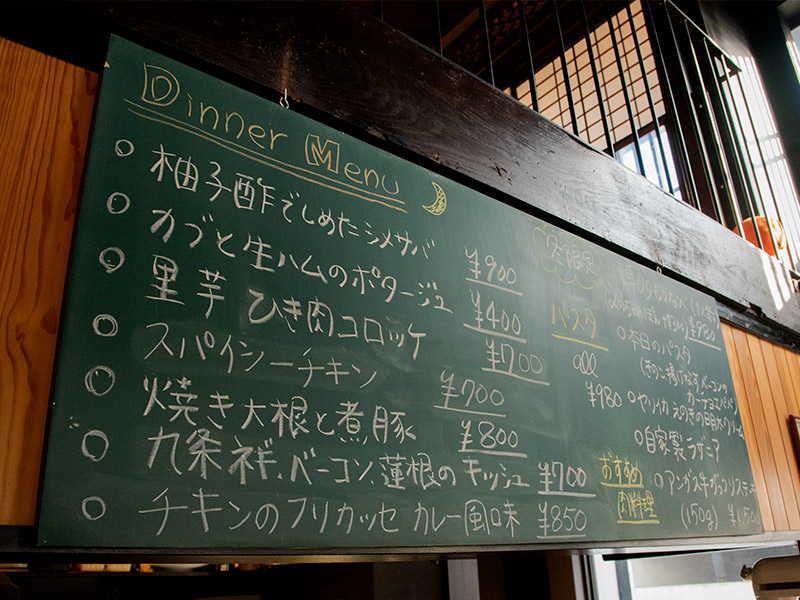 Dinner Menu
柚子酢でしめたシメサバ ¥900
カブと生ハムのポタージュ ¥400
里芋 ひき肉コロッケ ¥700
スパイシーチキン ¥700
焼き大根と煮豚 ¥800
九条ネギ、ベーコン、蓮根のキッシュ ¥700
チキンのフリカッセ カレー風味 ¥850
冬限定
(1人前)
¥980
パスタ
all
¥980
本日のパスタ
(きのこ 揚げなす ベーコンの
ヤリイカ えのきの明太クリーム
自家製ラザニア
おすすめ
肉料理
アンガス牛
(150g)